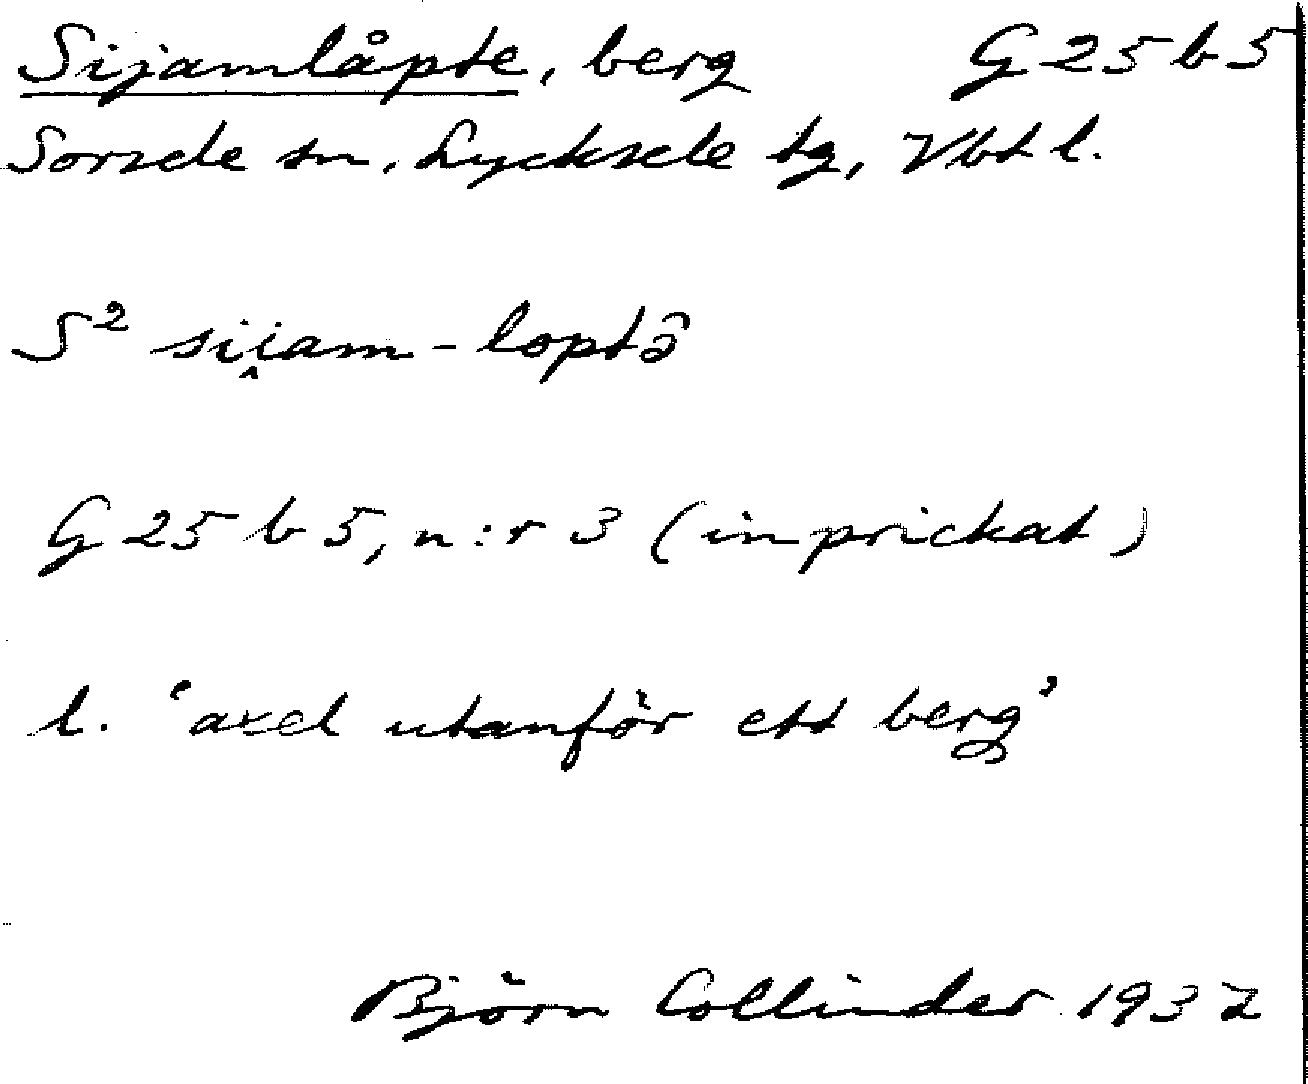 Sijamlåpte, berg G25b5
Sorsele sn, Lycksele tg, Vbt l.
S² sii̭am-loptə̑
G25b5, n:r 3 (inprickat)
l. 'axel utanför ett berg'
Björn Collinder 1937